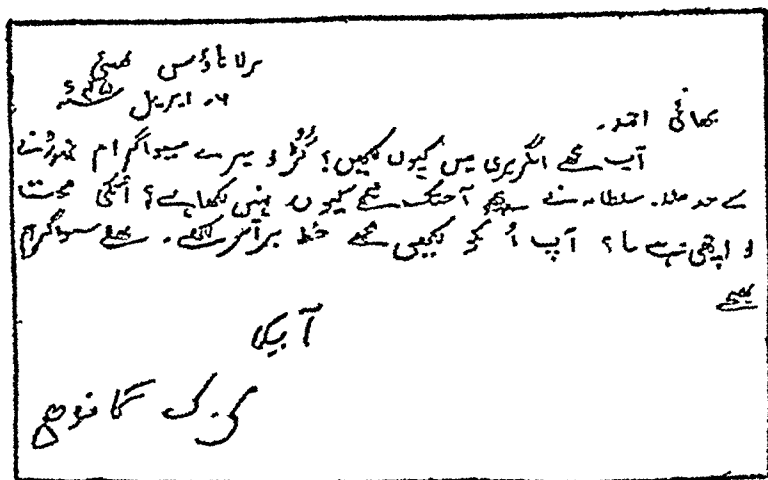 برلا ہاؤس بمبئی
۶۔ اپریل ۴۵ء
بھائی احمد۔
آپ مجھے انگریزی میں کیوں لکھیں؟ کُرّو میرے سیواگرام
کے بعد ملا۔ سلطانہ نے مجھے آجتک مجھے کیوں نہیں لکھا ہے؟ اُنکی صحت
تو اچھی ہے نا؟ آپ اُ کو لکھیں مجھے خط برابر لکھے۔ مجھے سیواگرام
بھیجے
آپکا
م۔ ک گاندھی